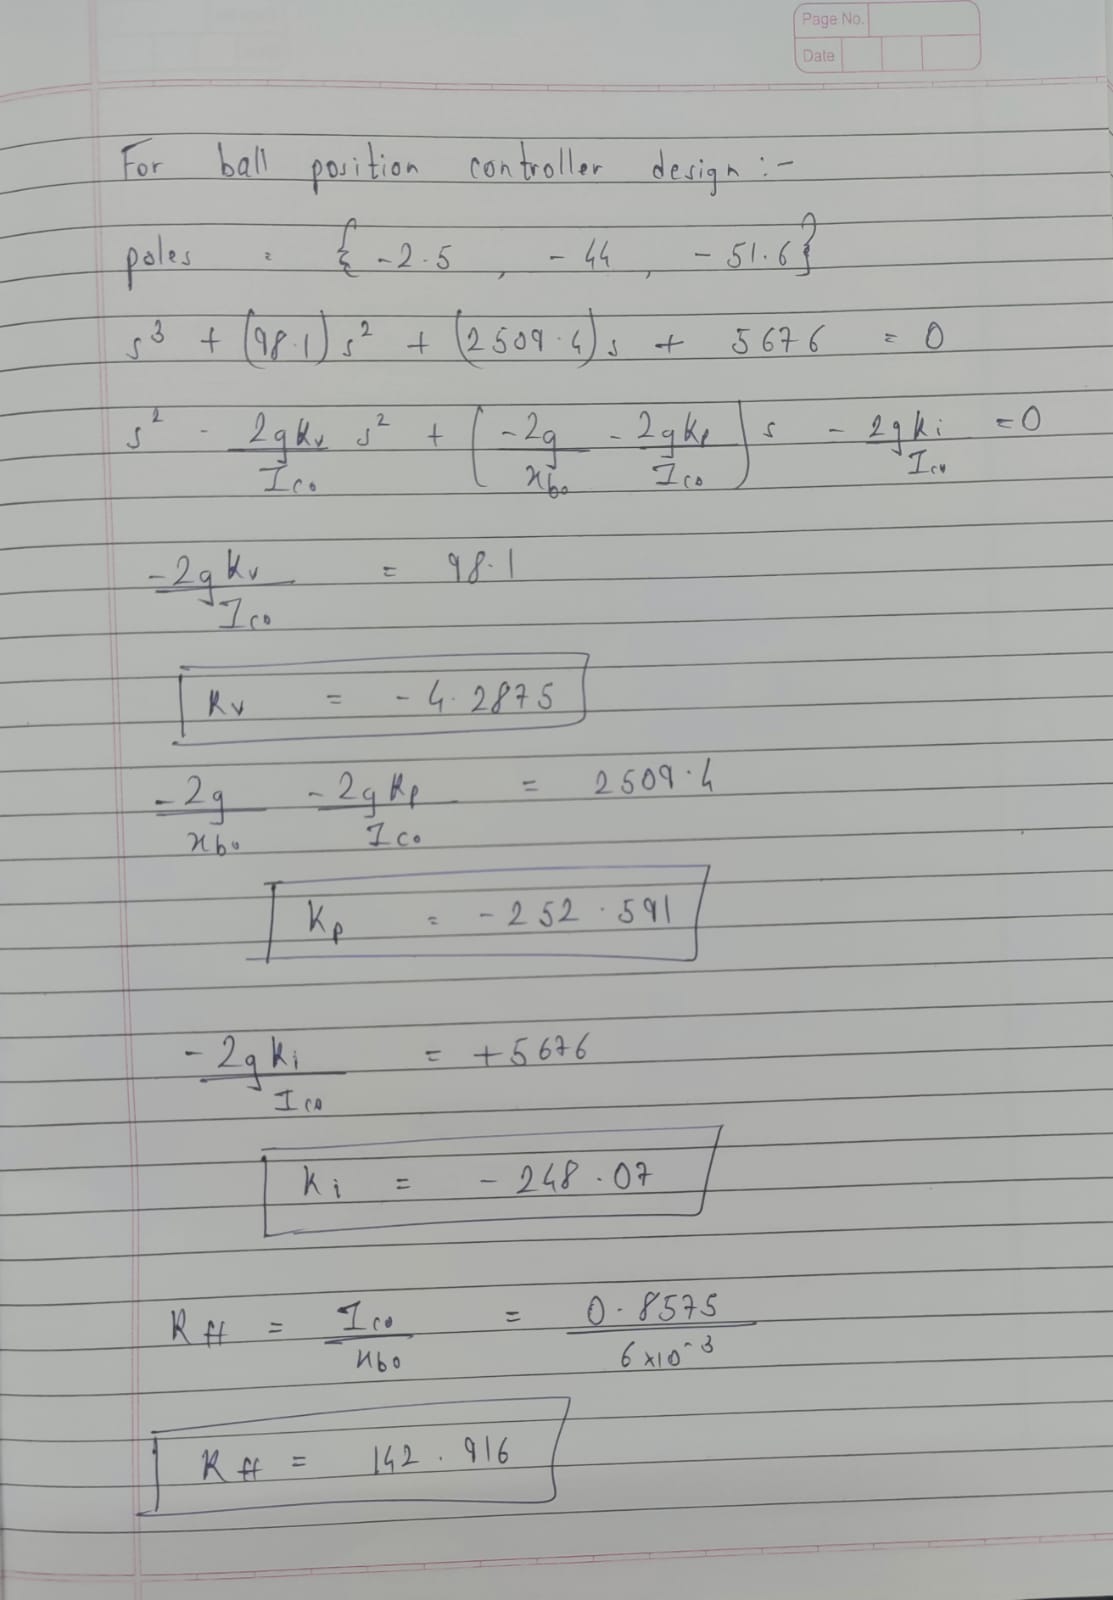 Page No.
Date
For ball position controller design :-
poles = { -2.5 , -44 , -51.6 }
s³ + (98.1) s² + (2509.4) s + 5676 = 0
s² - 2gKv/Ico s² + ( -2g/xbo - 2gKp/Ico ) s - 2gki/Ico = 0
-2gKv/Ico = 98.1
Kv = -4.2875
-2g/xbo - 2gKp/Ico = 2509.4
Kp = -252.591
-2gKi/Ico = +5676
Ki = -248.07
Kff = Ico/xbo = 0.8575/6×10⁻³
Kff = 142.916